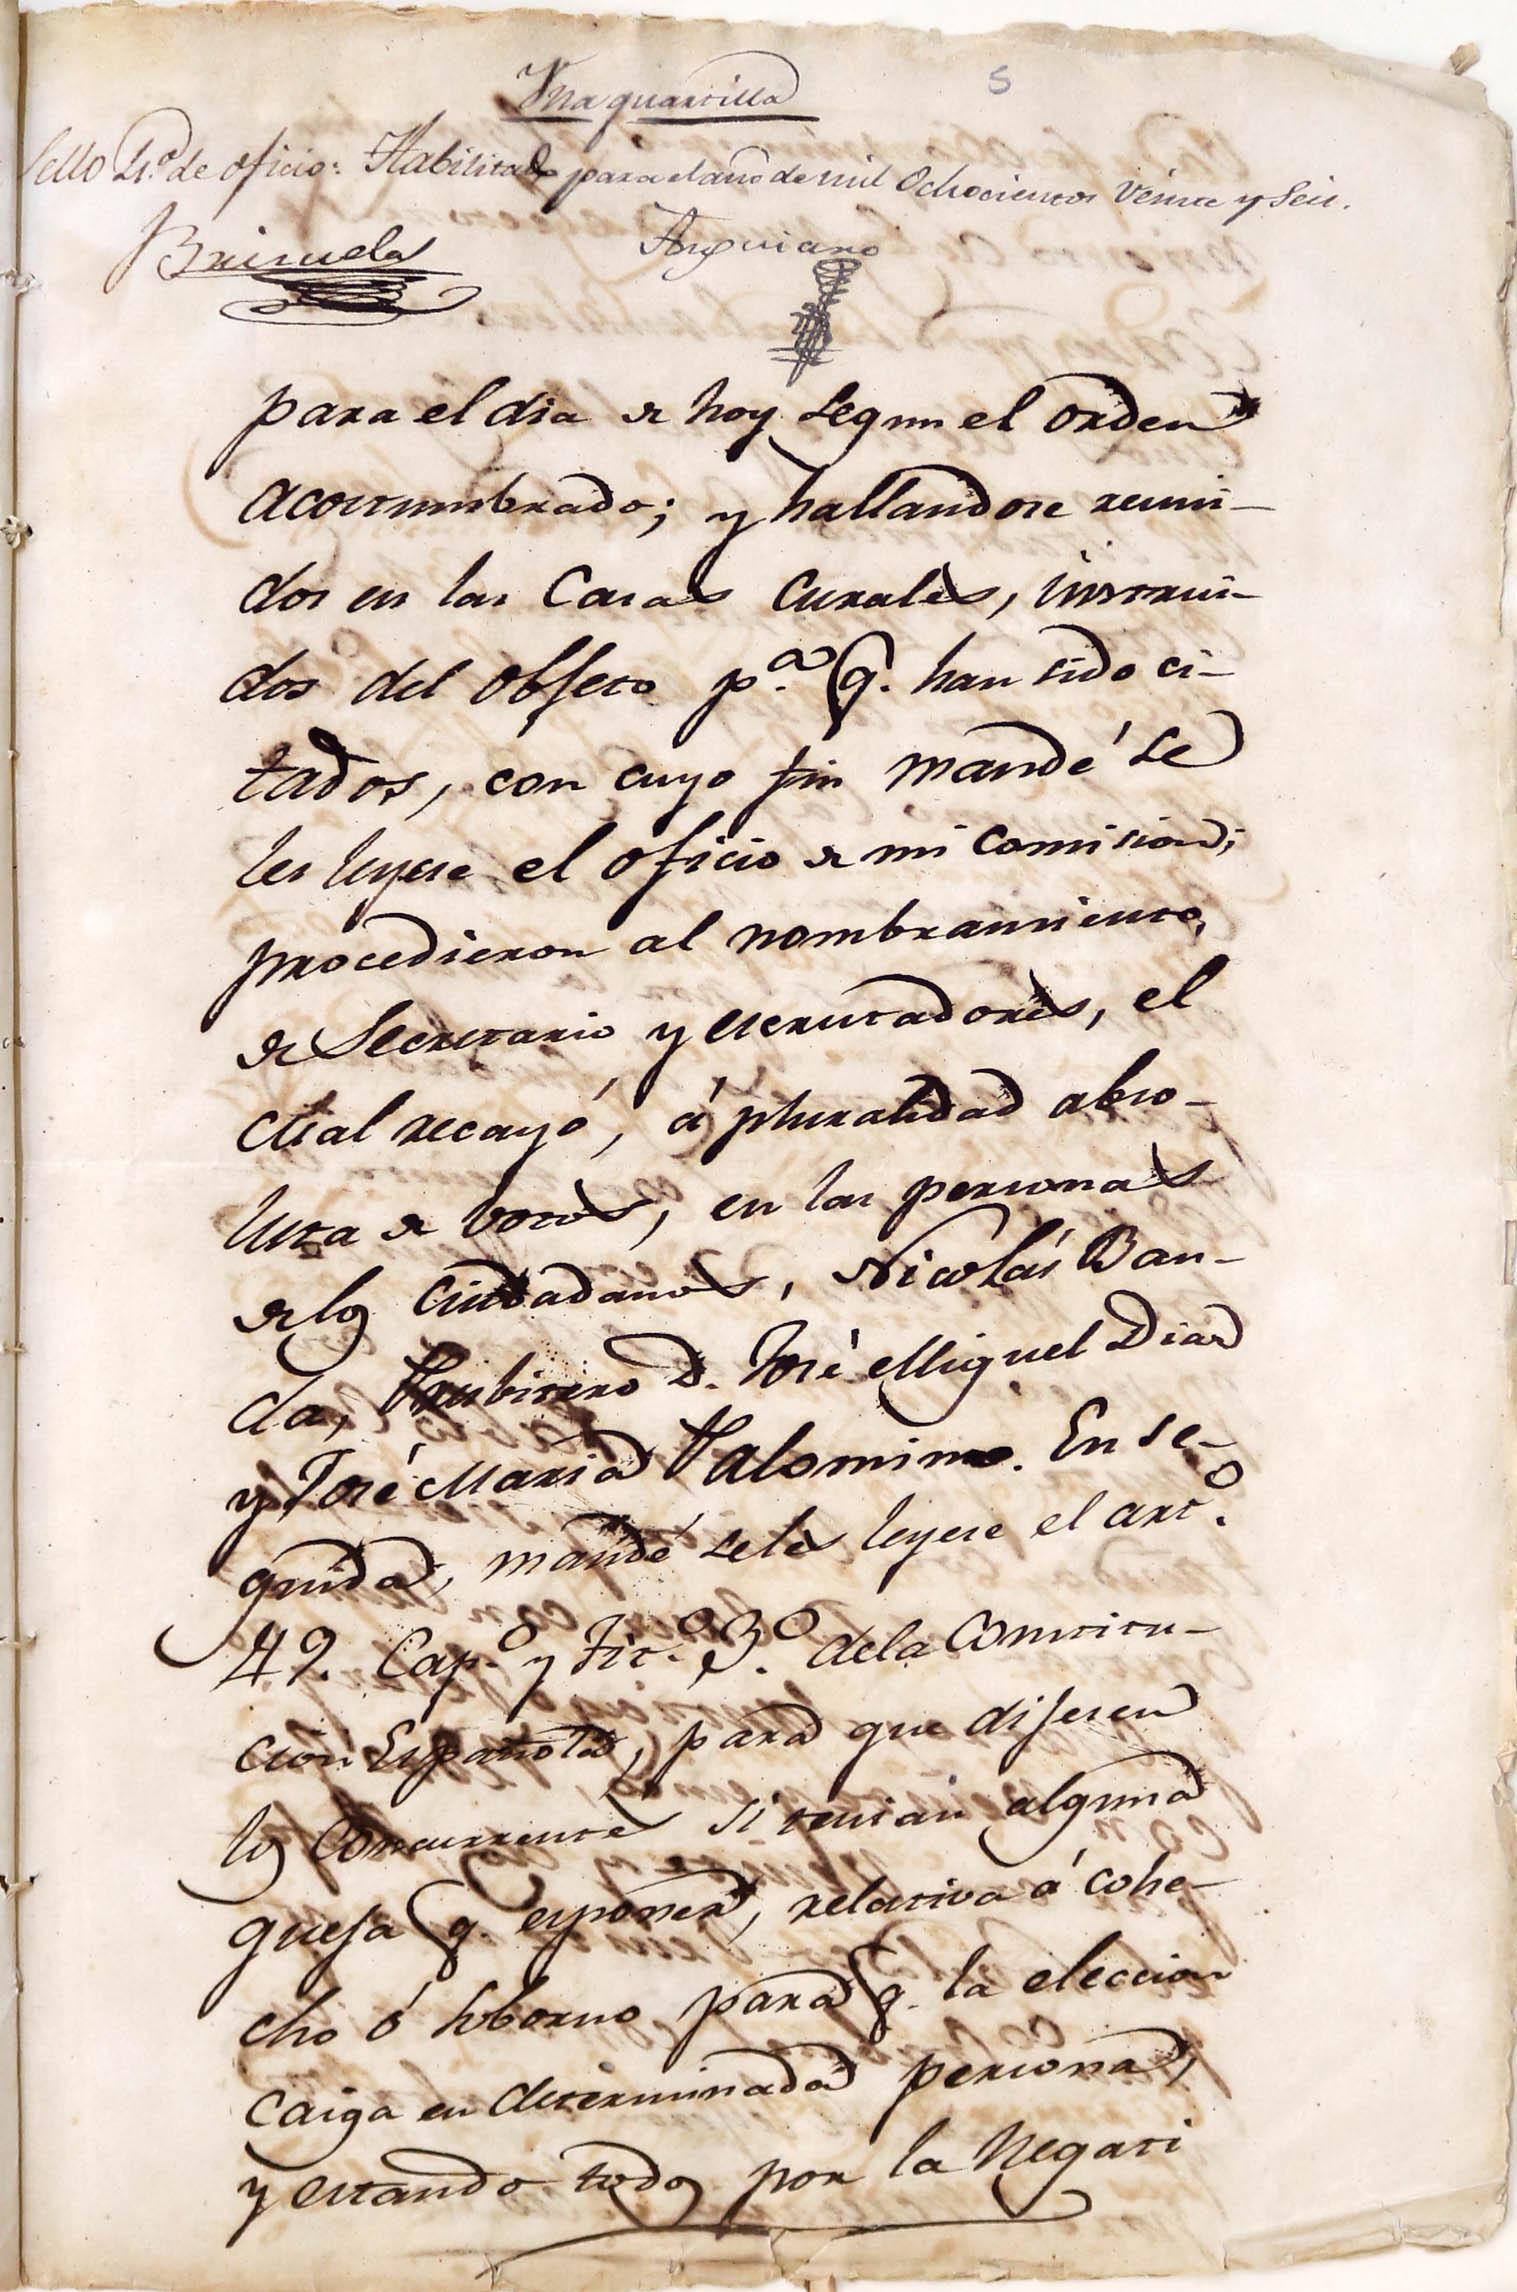 Una quartilla
5
Sello 4.º de oficio: Habilitado para el año de mil Ochocientos Veinte y Seis.
Brisuela Anguiano
para el dia de hoy segun el orden
acostumbrado; y hallandose reuni-
dos en las Casas Curales, instrui-
dos del objeto p.ª q. han sido ci-
tados, con cuyo fin mandé se
les leyese el oficio de mi comision;
procedieron al nombramiento,
de Secretario y escrutadores, el
cual recayó, á pluralidad abso-
luta de votos, en las personas
de los Ciudadanos, Nicolás Ban-
da, Presbitero D. José Miguel Dias
y José Maria Palomino. En se-
guida, mandé seles leyese el art.º
49. Cap.º y tit.º 3.º dela Constitu-
cion Española, para que dijesen
los Concurrentes si tenian alguna
queja q. esponer, relativa á cohe-
cho ó soborno para q. la eleccion
Caiga en determinada persona,
y estando todos por la Negati